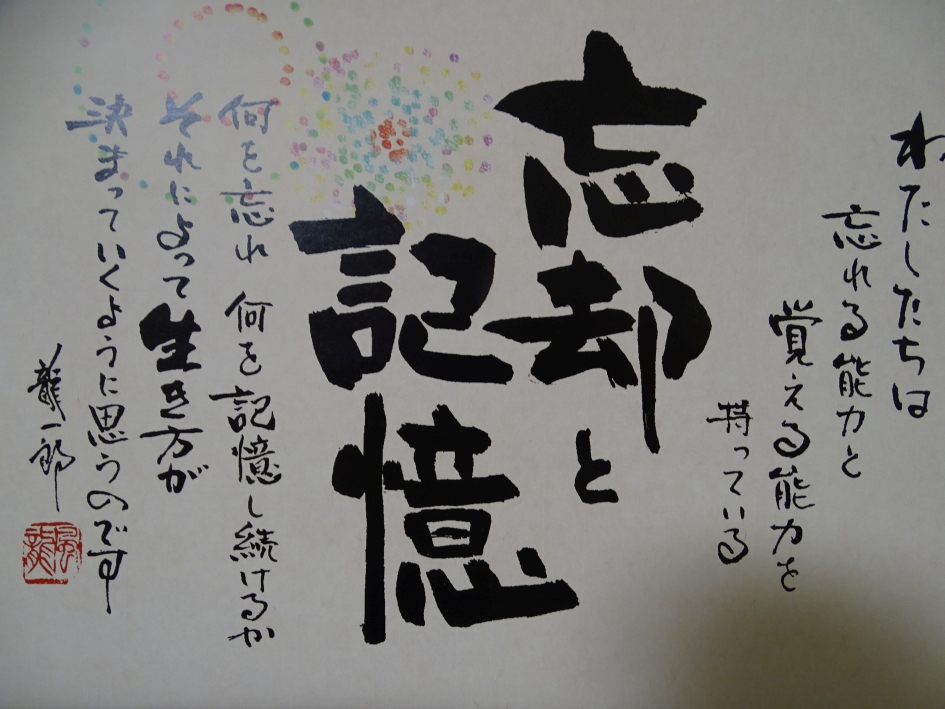 わたしたちは
忘れる能力と
覚える能力を
持っている
忘却と
記憶
何を忘れ 何を記憶し続けるか
それによって生き方が
決まっていくように思うのです
龍一郎
風龍